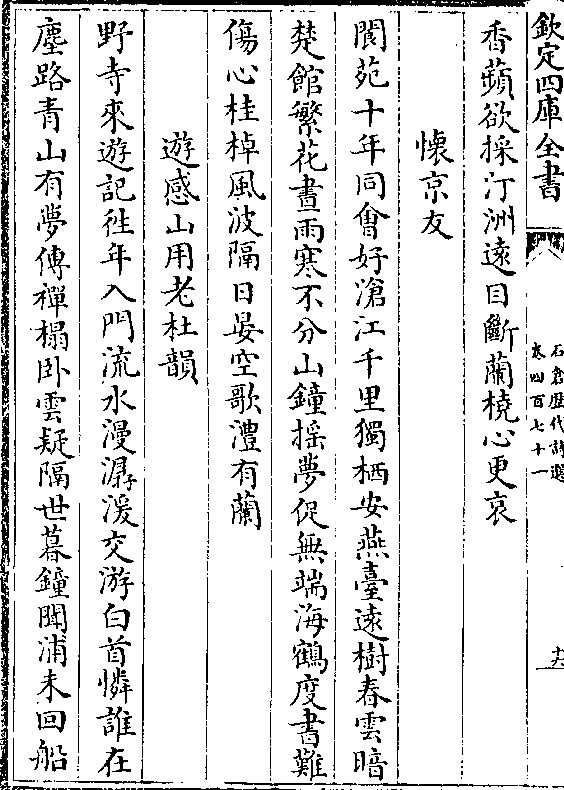 欽定四庫全書
石倉歴代詩選
卷四百七十一
十六
香蘋欲採汀洲遠目斷蘭橈心更哀
懐京友
閬苑十年同會好滄江千里獨栖安燕臺遠樹春雲暗
楚館繁花晝雨寒不分山鐘揺夢促無端海鶴度書難
傷心桂棹風波隔日晏空歌澧有蘭
遊感山用老杜韻
野寺來遊記徃年入門流水漫潺湲交游白首憐誰在
塵路青山有夢傳禪榻卧雲疑隔世暮鐘聞浦未回船